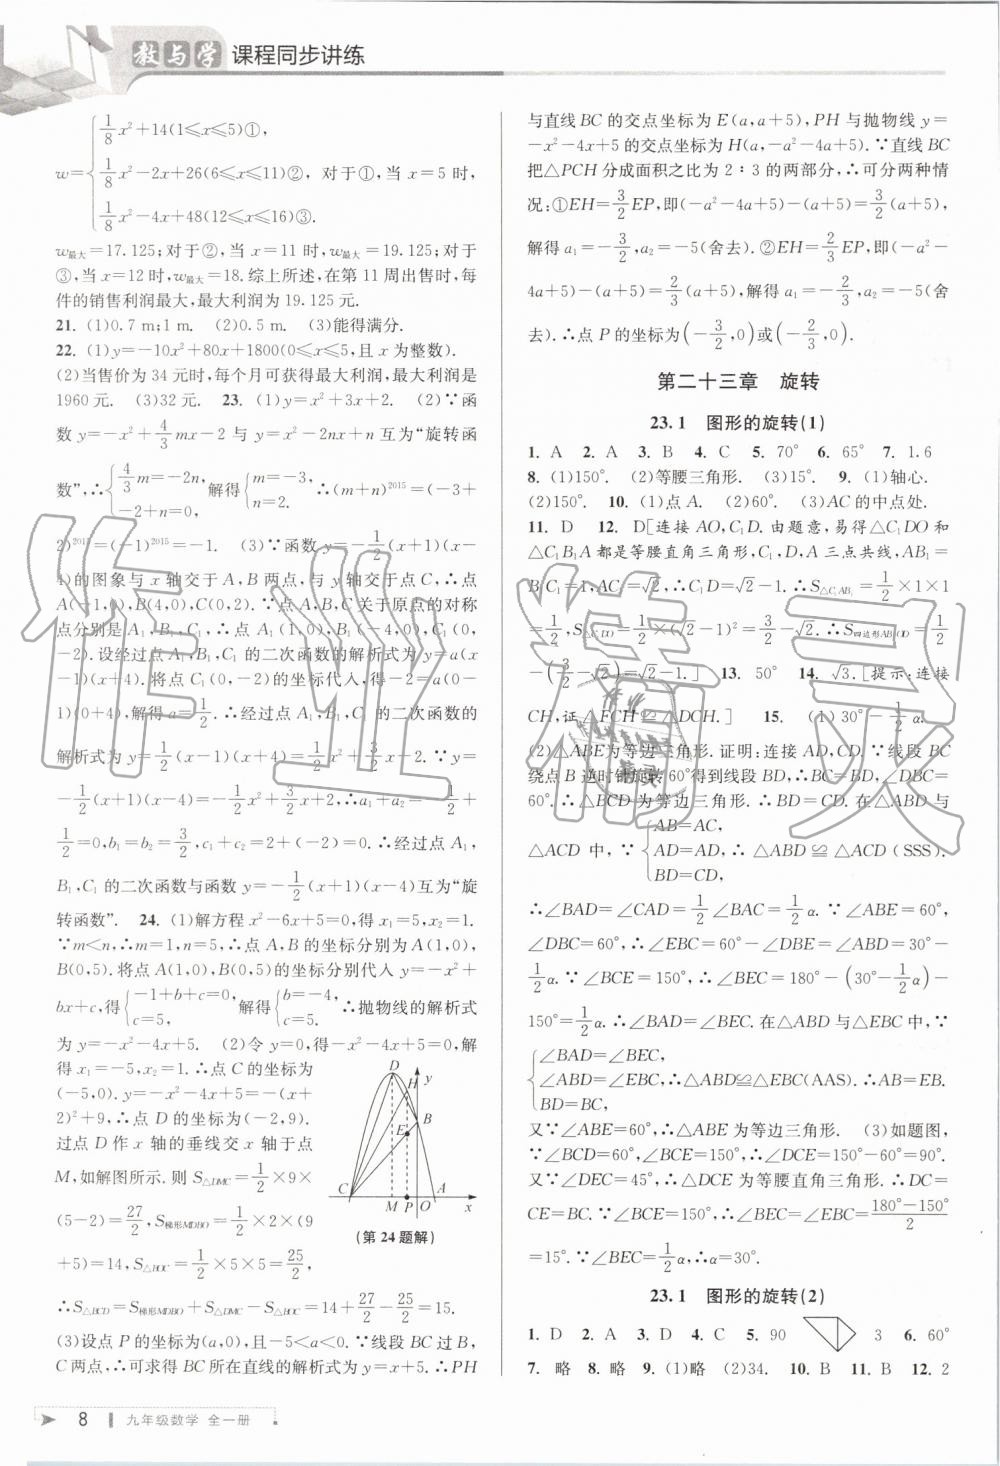 教与学 课程同步讲练
w={1/8x²+14(1≤x≤5)①,
1/8x²-2x+26(6≤x≤11)②, 对于①,当 x=5 时,
1/8x²-4x+48(12≤x≤16)③.
w最大=17.125;对于②,当 x=11 时,w最大=19.125;对于
③,当 x=12 时,w最大=18.综上所述,在第 11 周出售时,每
件的销售利润最大,最大利润为 19.125 元.
21. (1)0.7 m;1 m. (2)0.5 m. (3)能得满分.
22. (1)y=-10x²+80x+1800(0≤x≤5,且 x 为整数).
(2)当售价为 34 元时,每个月可获得最大利润,最大利润是
1960 元. (3)32 元. 23. (1)y=x²+3x+2. (2)∵函
数 y=-x²+4/3mx-2 与 y=x²-2nx+n 互为“旋转函
数”,∴{4/3m=-2n, -2+n=0, 解得{m=-3, n=2. ∴(m+n)²⁰¹⁵=(-3+
2)²⁰¹⁵=(-1)²⁰¹⁵=-1. (3)∵函数 y=-1/2(x+1)(x-
4)的图象与 x 轴交于 A,B 两点,与 y 轴交于点 C,∴点
A(-1,0),B(4,0),C(0,2).∵点 A,B,C 关于原点的对称
点分别是 A₁,B₁,C₁,∴点 A₁(1,0),B₁(-4,0),C₁(0,
-2).设经过点 A₁,B₁,C₁ 的二次函数的解析式为 y=a(x
-1)(x+4).将点 C₁(0,-2)的坐标代入,得-2=a(0-
1)(0+4),解得 a=1/2.∴经过点 A₁,B₁,C₁ 的二次函数的
解析式为 y=1/2(x-1)(x+4)=1/2x²+3/2x-2.∵y=
-1/2(x+1)(x-4)=-1/2x²+3/2x+2,∴a₁+a₂=-1/2+
1/2=0,b₁=b₂=3/2,c₁+c₂=2+(-2)=0.∴经过点 A₁,
B₁,C₁ 的二次函数与函数 y=-1/2(x+1)(x-4)互为“旋
转函数”. 24. (1)解方程 x²-6x+5=0,得 x₁=5,x₂=1.
∵m<n,∴m=1,n=5,∴点 A,B 的坐标分别为 A(1,0),
B(0,5).将点 A(1,0),B(0,5)的坐标分别代入 y=-x²+
bx+c,得{-1+b+c=0, c=5, 解得{b=-4, c=5. ∴抛物线的解析式
为 y=-x²-4x+5. (2)令 y=0,得-x²-4x+5=0,解
得 x₁=-5,x₂=1.∴点 C 的坐标为
(-5,0).y=-x²-4x+5=-(x+
2)²+9,∴点 D 的坐标为(-2,9).
过点 D 作 x 轴的垂线交 x 轴于点
M,如解图所示.则 S△DMC=1/2×9×
(5-2)=27/2,S梯形MDBO=1/2×2×(9
+5)=14,S△BOC=1/2×5×5=25/2,
D H y B E C M P O A x
(第 24 题解)
∴S△BCD=S梯形MDBO+S△DMC-S△BOC=14+27/2-25/2=15.
(3)设点 P 的坐标为(a,0),且-5<a<0.∵线段 BC 过 B,
C 两点,∴可求得 BC 所在直线的解析式为 y=x+5.∴PH
与直线 BC 的交点坐标为 E(a,a+5),PH 与抛物线 y=
-x²-4x+5 的交点坐标为 H(a,-a²-4a+5).∵直线 BC
把△PCH 分成面积之比为 2∶3 的两部分,∴可分两种情
况:①EH=3/2EP,即(-a²-4a+5)-(a+5)=3/2(a+5),
解得 a₁=-3/2,a₂=-5(舍去).②EH=2/3EP,即(-a²-
4a+5)-(a+5)=2/3(a+5),解得 a₁=-2/3,a₂=-5(舍
去).∴点 P 的坐标为(-3/2,0)或(-2/3,0).
第二十三章 旋转
23.1 图形的旋转(1)
1. A 2. A 3. B 4. C 5. 70° 6. 65° 7. 1.6
8. (1)150°. (2)等腰三角形. (3)15°. 9. (1)轴心.
(2)150°. 10. (1)点 A. (2)60°. (3)AC 的中点处.
11. D 12. D[连接 AO,C₁D.由题意,易得△C₁DO 和
△C₁B₁A 都是等腰直角三角形,C₁,D,A 三点共线,AB₁=
B₁C₁=1,AC₁=√2,∴C₁D=√2-1.∴S△C₁AB₁=1/2×1×1
=1/2,S△C₁DO=1/2×(√2-1)²=3/2-√2.∴S四边形AB₁OD=1/2
-(3/2-√2)=√2-1.] 13. 50° 14. √3.[提示:连接
CH,证△FCH≌△DCH.] 15. (1)30°-1/2α.
(2)△ABE 为等边三角形.证明:连接 AD,CD.∵线段 BC
绕点 B 逆时针旋转 60°得到线段 BD,∴BC=BD,∠DBC=
60°.∴△BCD 为等边三角形.∴BD=CD.在△ABD 与
△ACD 中,∵{AB=AC, AD=AD, BD=CD, ∴△ABD≌△ACD(SSS).
∴∠BAD=∠CAD=1/2∠BAC=1/2α.∵∠ABE=60°,
∠DBC=60°,∴∠EBC=60°-∠DBE=∠ABD=30°-
1/2α.∵∠BCE=150°,∴∠BEC=180°-(30°-1/2α)-
150°=1/2α.∴∠BAD=∠BEC.在△ABD 与△EBC 中,∵
{∠BAD=∠BEC,
∠ABD=∠EBC,∴△ABD≌△EBC(AAS).∴AB=EB.
BD=BC,
又∵∠ABE=60°,∴△ABE 为等边三角形. (3)如题图,
∵∠BCD=60°,∠BCE=150°,∴∠DCE=150°-60°=90°.
又∵∠DEC=45°,∴△DCE 为等腰直角三角形.∴DC=
CE=BC.∵∠BCE=150°,∴∠BEC=∠EBC=(180°-150°)/2
=15°.∵∠BEC=1/2α,∴α=30°.
23.1 图形的旋转(2)
1. D 2. A 3. D 4. C 5. 90 3 6. 60°
7. 略 8. 略 9. (1)略 (2)34. 10. B 11. B 12. 2
8 九年级数学 全一册
作业精灵